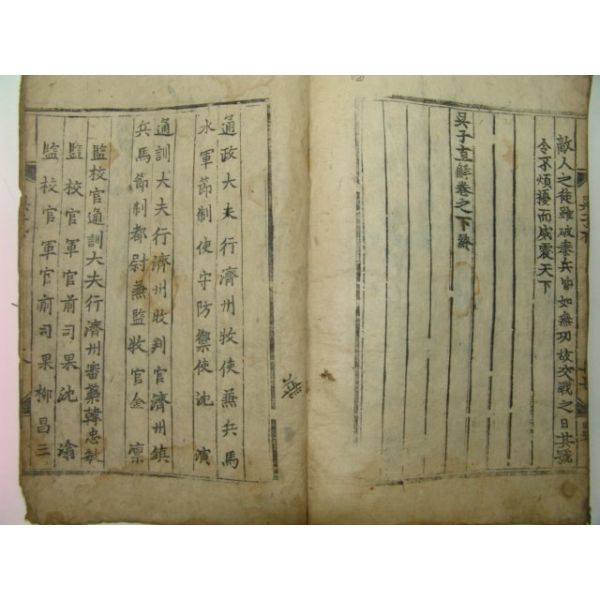 敵人之徒雖破秦兵皆如無功故交戰之日其號
令不煩擾而威震天下
吳子直解卷之下終
通政大夫行濟州牧使兼兵馬
水軍節制使守防禦使沈演
通訓大夫行濟州牧判官濟州鎮
兵馬節制都尉兼監牧官金凜
監校官通訓大夫行濟州審藥韓忠敏
監校官軍官前司果沈
監校官軍官前司果柳昌三